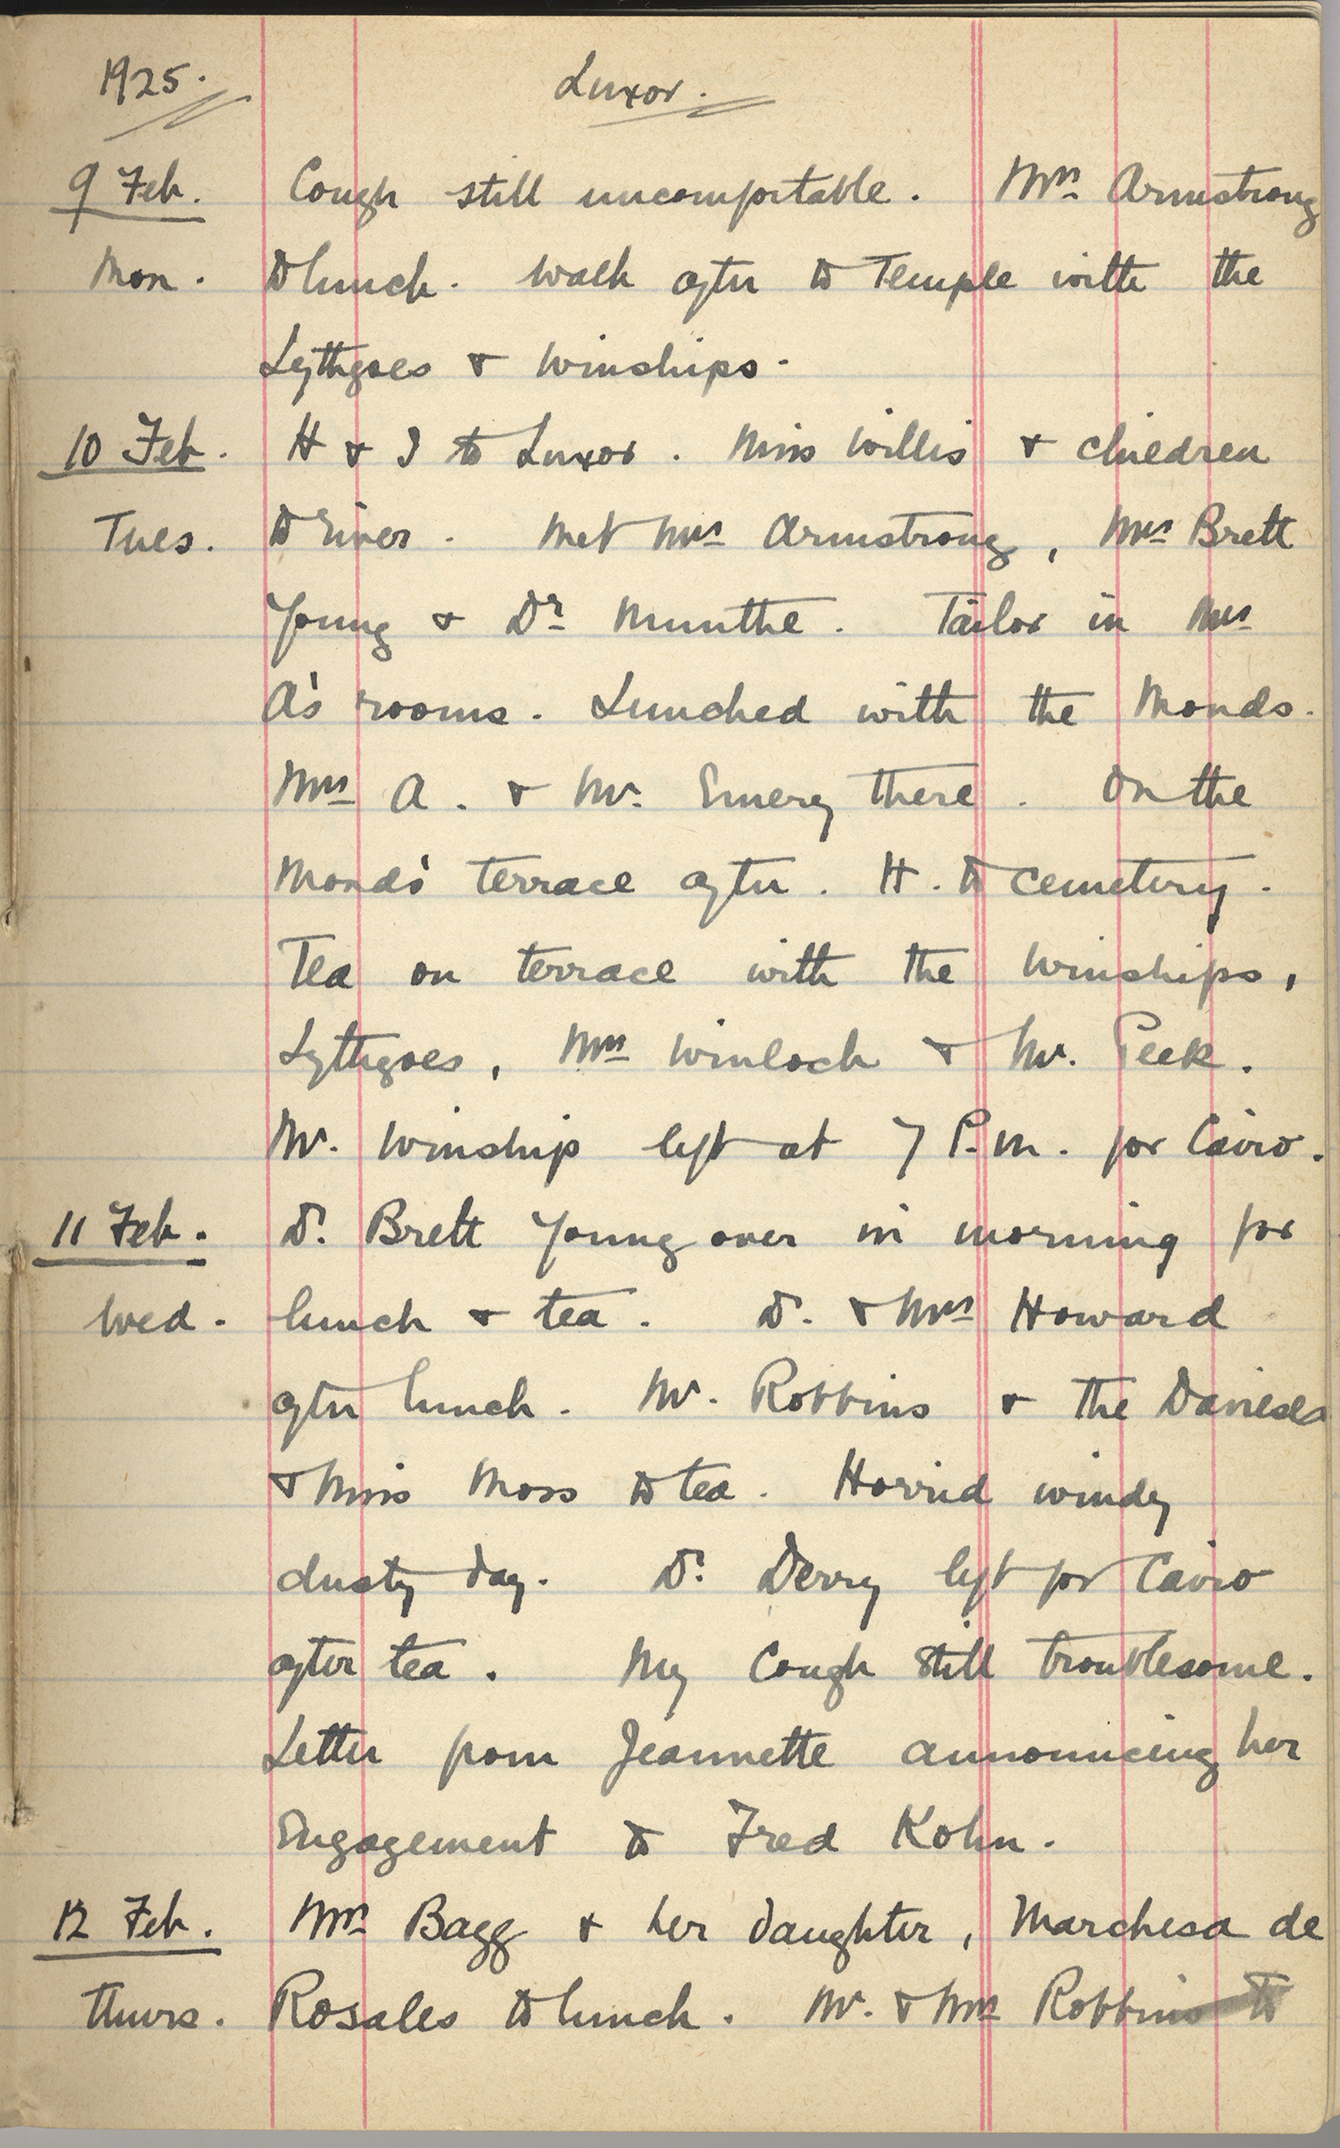 1925. Luxor.
9 Feb. Cough still uncomfortable. Mrs Armstrong
Mon. to lunch. Walk after to Temple with the
Lythgoes & Winships.
10 Feb. H & I to Luxor. Miss Willis & children
Tues. to river. Met Mrs Armstrong, Mrs Brett
Young & Dr Munthe. Tailor in Mrs
A's rooms. Lunched with the Monds.
Mrs A. & Mr. Emery there. On the
Monds' terrace after. H. to cemetery.
Tea on terrace with the Winships,
Lythgoes, Mrs Winlock & Mr. Peek.
Mr. Winship left at 7 P.m. for Cairo.
11 Feb. Dr. Brett Young over in morning for
Wed. lunch & tea. Dr. & Mrs Howard
after lunch. Mr. Robbins & the Davieses
& Miss Moss to tea. Horrid windy
dusty day. Dr. Derry left for Cairo
after tea. My Cough still troublesome.
Letter from Jeannette announcing her
Engagement to Fred Kohn.
12 Feb. Mrs Bagg & her daughter, Marchesa de
Thurs. Rosales to lunch. Mr. & Mrs Robbins to